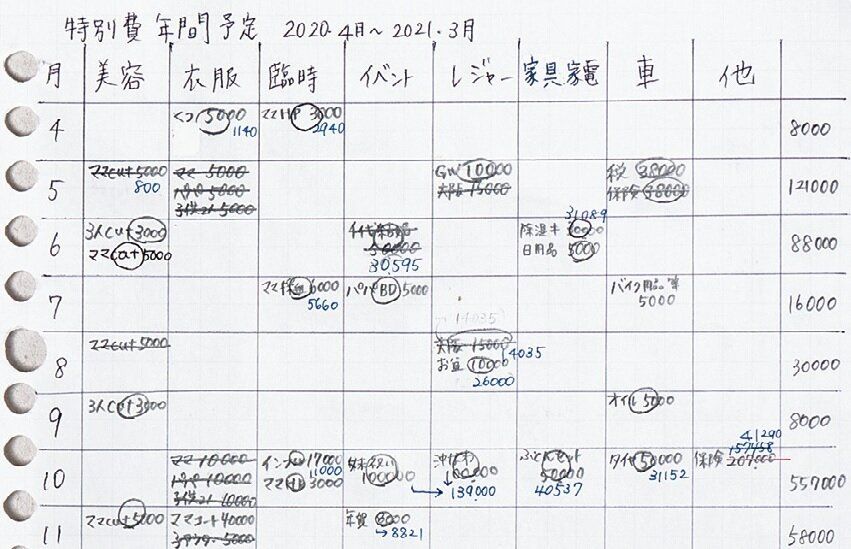 特別費 年間予定 2020.4月～2021.3月
月 美容 衣服 臨時 イベント レジャー 家具家電 車 他
4 くつ 5000 ママHP 3000 8000
1140 2940
5 ママcut 5000 ママ 5000 GW 10000 税 38000 121000
800 パパ 5000 大阪 15000 保険 38000
5000
31089
6 3人cut 3000 除湿キ 30000 88000
ママcut 5000 50000 日用品 5000
30,595
7 ママ採血 6000 パパBD 5000 バイク用品等 16000
5660 5000
14035
8 ママcut 5000 大阪 15000 14035 30000
お盆 10000
26000
9 3人cut 3000 オイル 5000 8000
41290
157458
10 ママ 10000 インフル 17000 沖なわ ふとんセット タイヤ 50000 保険 207000 557000
パパ 10000 11000 100000 100000 50000 31152
10000 ママ 3000 139000 40537
11 ママcut 5000 ママコート 40000 年賀 8000 58000
5000 →8821